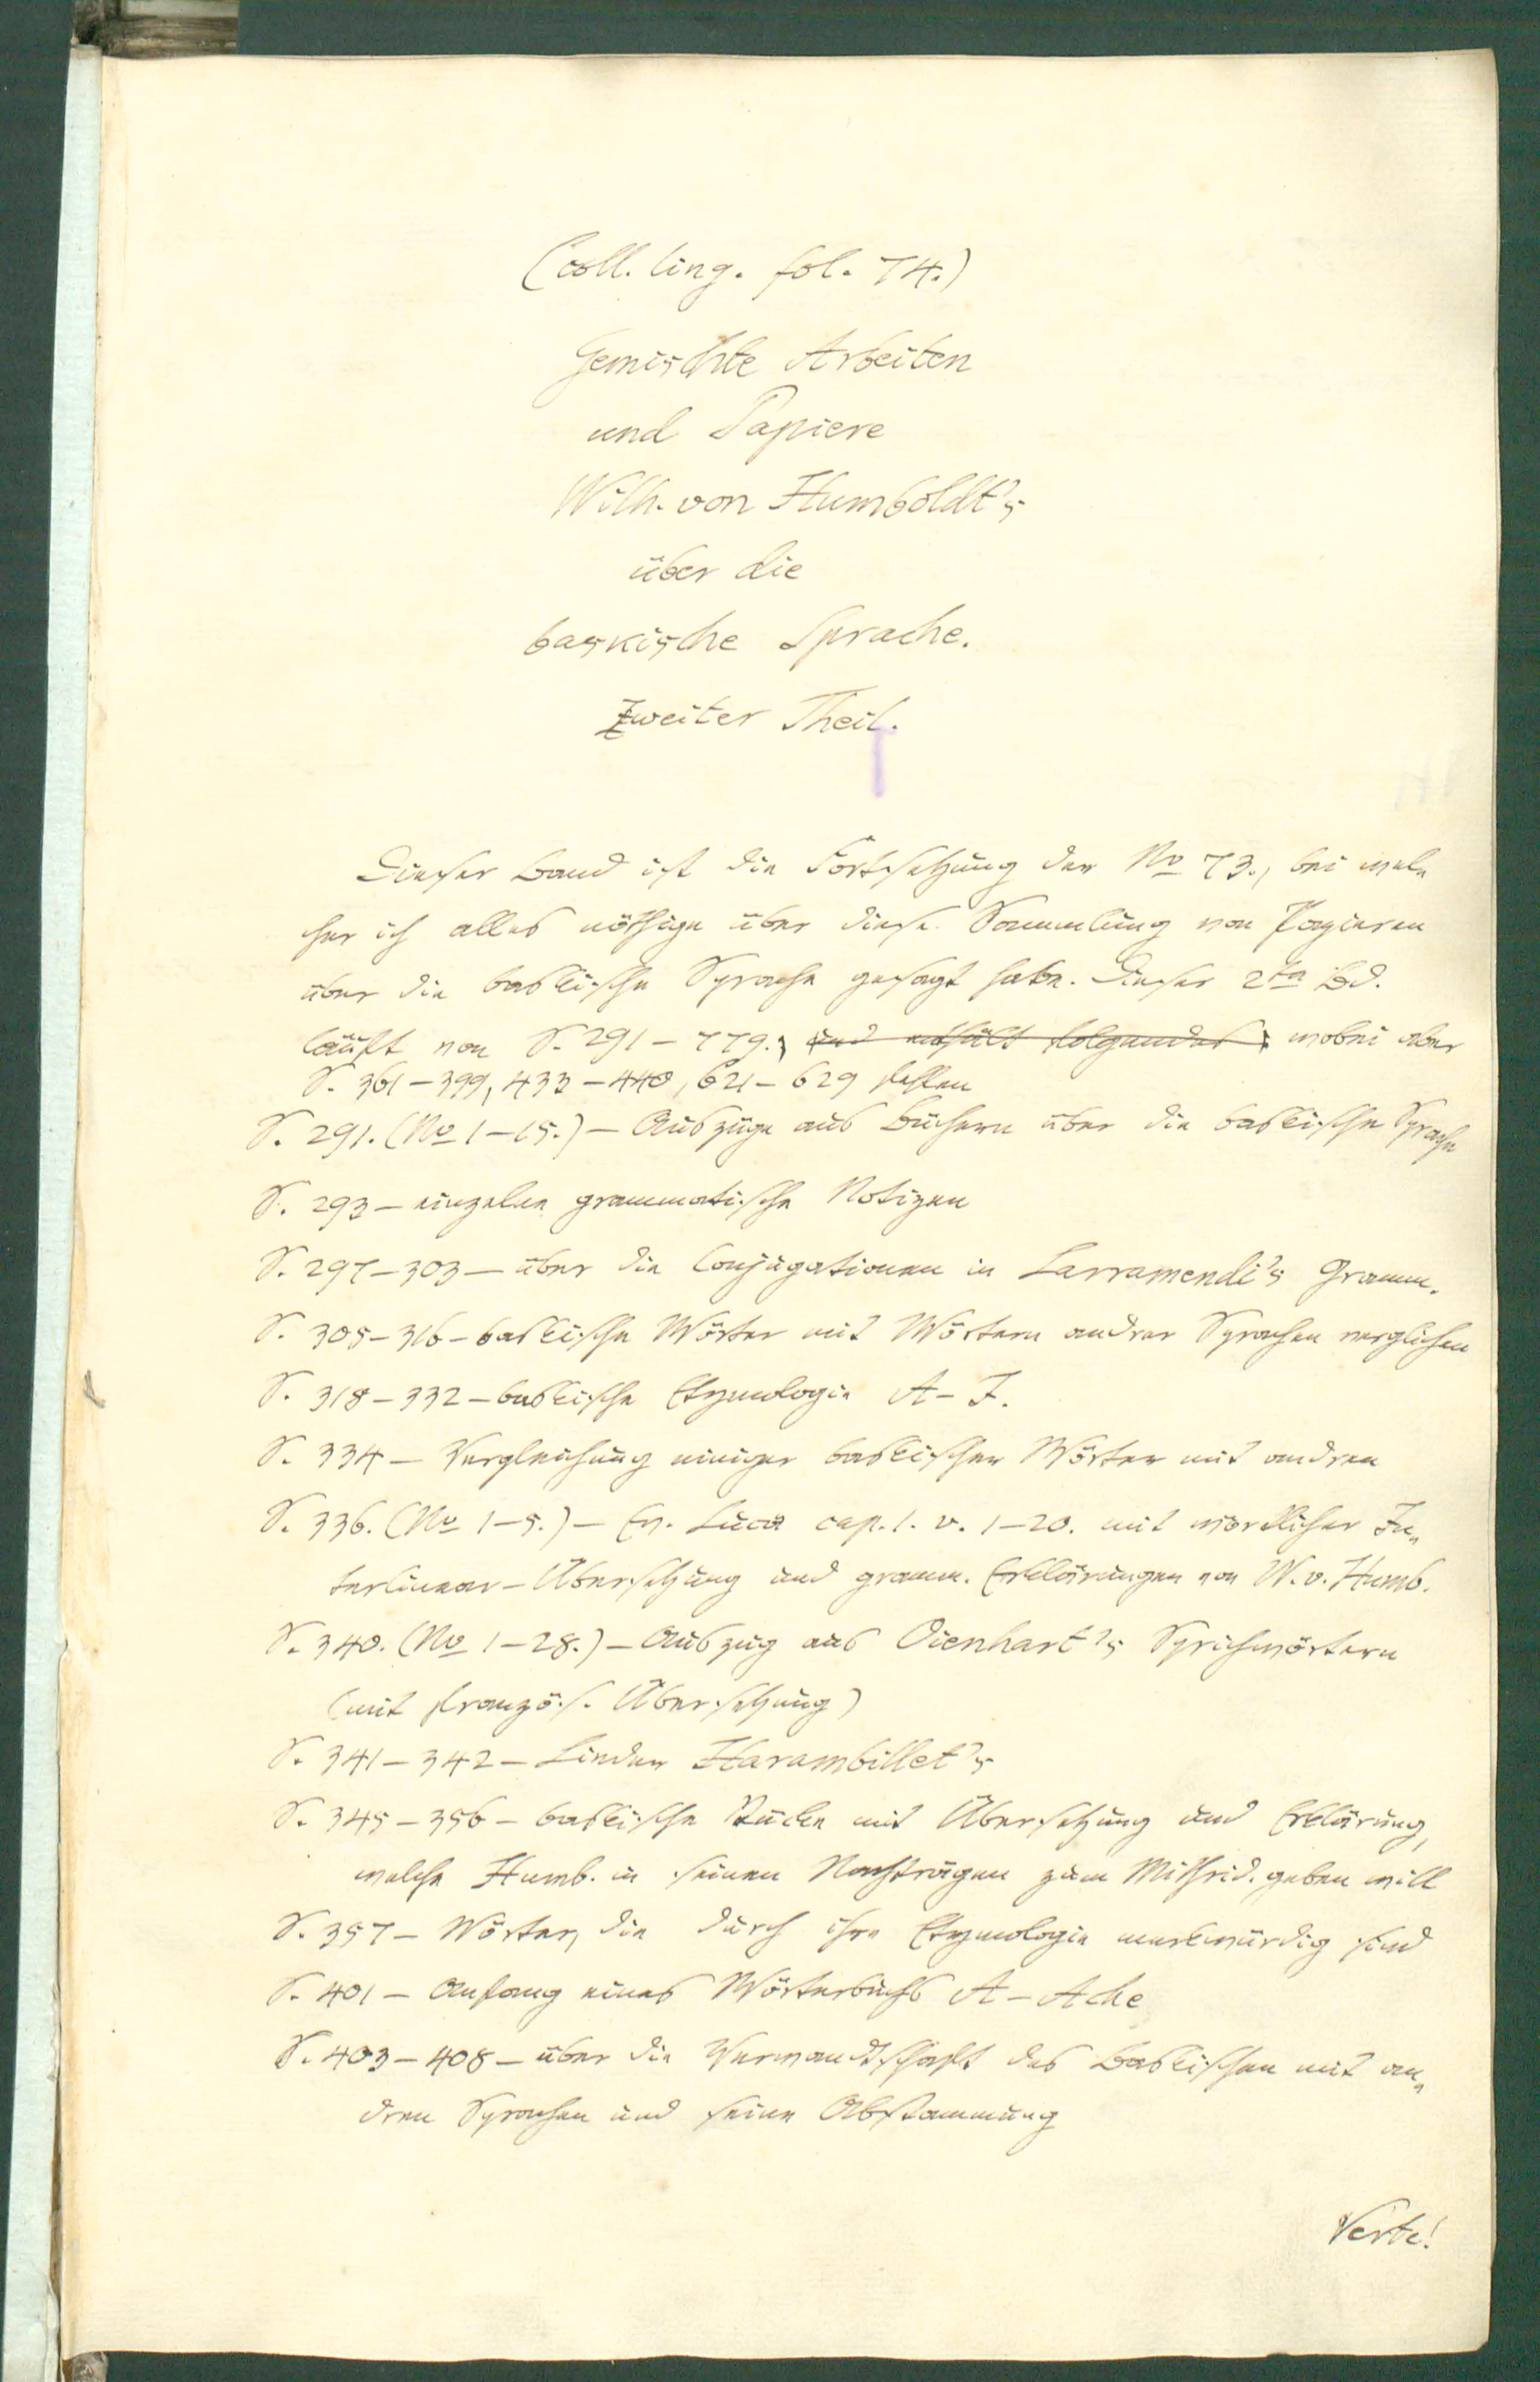 (Coll. ling. fol. 74.)
Gemischte Arbeiten
und Papiere
Wilh. von Humboldt's
über die
baskische Sprache.
Zweiter Theil.
Dieser Band ist die Fortsetzung der No 73., bei wel-
cher ich alles nöthige über diese Sammlung von Papieren
über die baskische Sprache gesagt habe. Dieser 2te Bd.
läuft von S. 291-779., und enthält folgendes: wobei aber
S. 361-399, 433-440, 621-629 fehlen
S. 291. (No 1-15.) - Auszüge aus Büchern über die baskische Sprache
S. 293 - einzelne grammatische Notizen
S. 297-303 - über die Conjugationen in Larramendi's Gramm.
S. 305-316 - baskische Wörter mit Wörtern andrer Sprachen verglichen
S. 318-332 - baskische Etymologie A-Z.
S. 334 - Vergleichung einiger baskischer Wörter mit andren
S. 336. (No 1-5.) - Ev. Lucä cap. 1. v. 1-20. mit wörtlicher In-
terlinear-Übersetzung und gramm. Erklärungen von W. v. Humb.
S. 340. (No 1-28.) - Auszug aus Oienhart's Sprichwörtern
(mit französ. Übersetzung)
S. 341-342 - Lieder Harambillet's
S. 345-356 - baskische Stücke mit Übersetzung und Erklärung,
welche Humb. in seinen Nachträgen zum Mithrid. geben will
S. 357 - Wörter, die durch ihre Etymologie merkwürdig sind
S. 401 - Anfang eines Wörterbuchs A-Ache
S. 403-408 - über die Verwandtschaft des Baskischen mit an-
dren Sprachen und seine Abstammung
Verte!